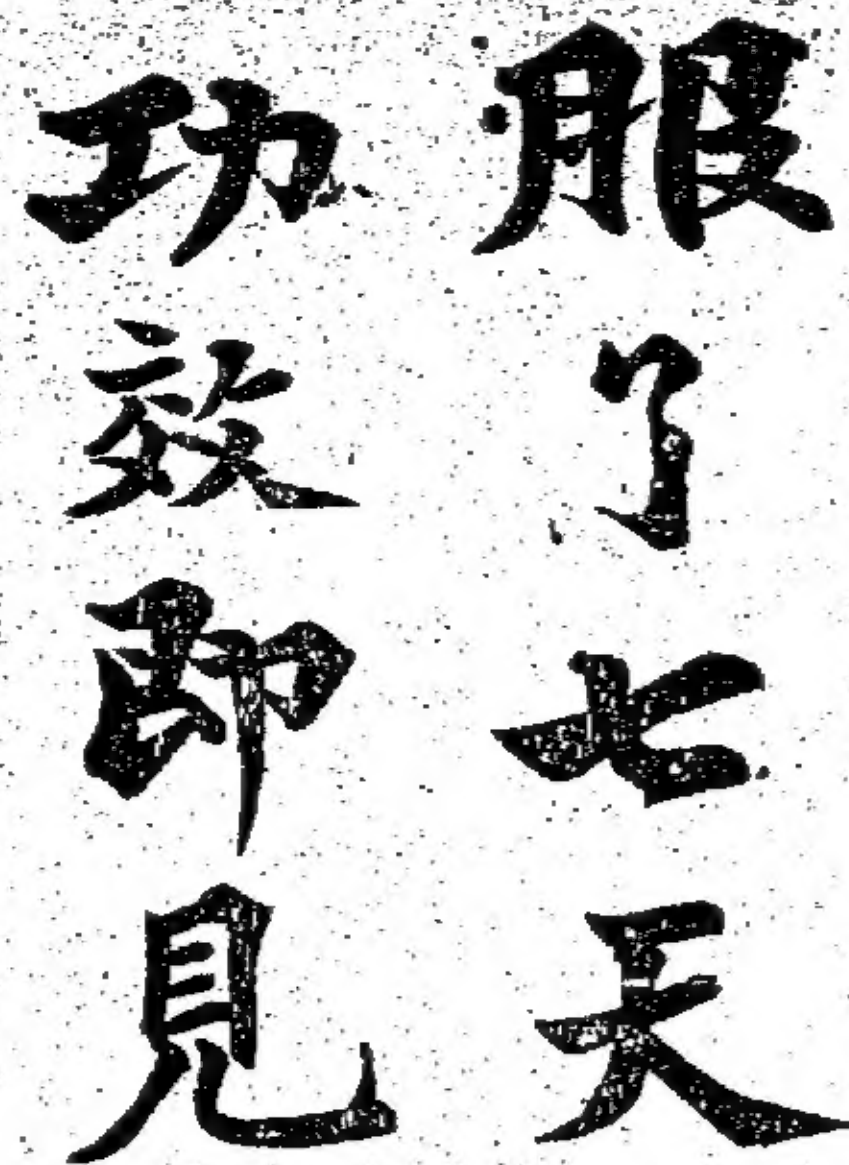 服了七天
功效即見